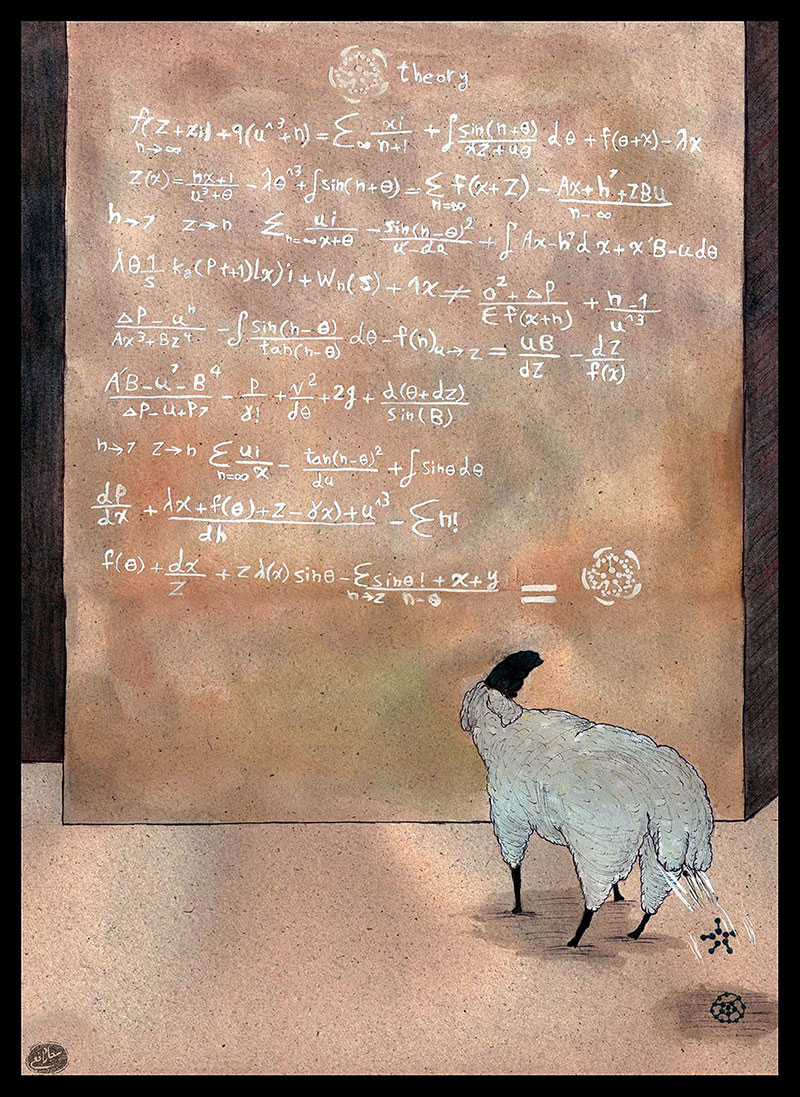 theory
f(z+x,) + q(u^3+n) = ∑∞ xi/n+1 + ∫ sin(n+θ)/xz+uθ dθ + f(θ+x) - λx
n→∞
z(x) = nx+1/u^3+θ - λθ^3 + ∫sin(n+θ) = ∑n=∞ f(x+z) - Ax+h^7+zBu/n-∞
h→7 z→n ∑n=∞ ui/x+θ - sin(n-θ)^2/u-du + ∫Ax-h^7dx+x'B-udθ
λθ 1/5 k2(Pt+1)(x)i + Wn(5) + 1x ≠ σ^2+ΔP/∑f(x+n) + n-1/u^3
ΔP-u^n/Ax^3+Bz^4 - ∫ sin(n-θ)/tan(n-θ) dθ - f(n)u→z = uB/dz - dz/f(x)
A'B-u^7-B^4/ΔP-u+P7 - P/γ! + v^2/dθ + 2g + d(θ+dz)/sin(B)
n→7 z→n ∑n=∞ ui/x - tan(n-θ)^2/du + ∫sinθdθ
dP/dx + λx+f(θ)+z-γx)+u^3/dh - ∑n!
f(θ) + dx/z + zλ(x)sinθ - ∑n→z sinθ!+x+y/n-θ =